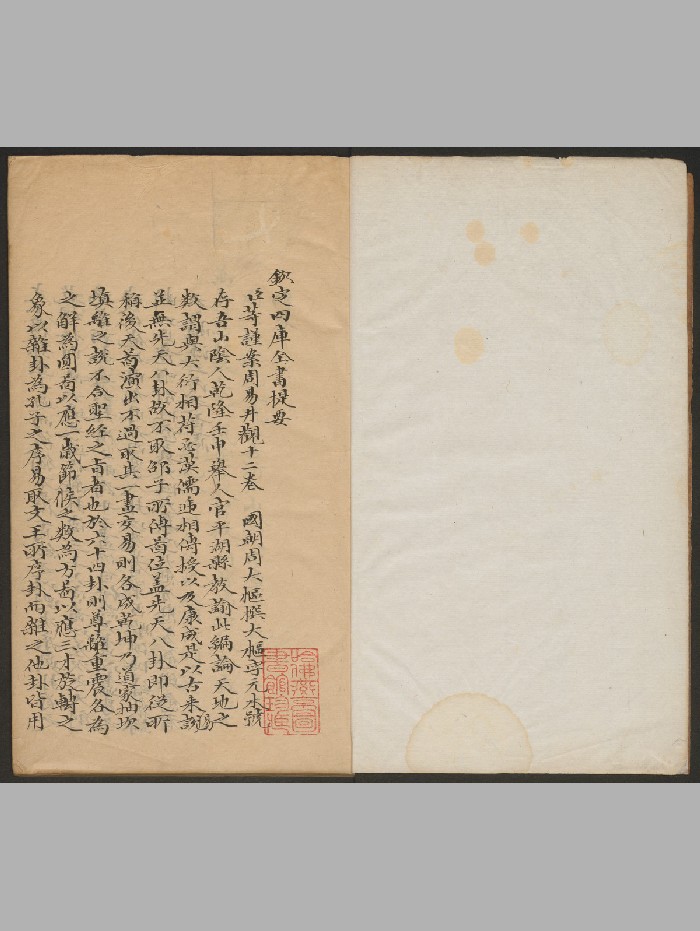 欽定四庫全書提要
臣等謹案周易井觀十二卷　國朝周大樞撰大樞字元木號
存吾山陰人乾隆壬申舉人官平湖縣教諭此編論天地之
數謂與大衍相符忌漢儒遞相傳授以及康成是以古來說易
並無先天八卦故不取邵子所傳圖位蓋先天八卦即從所
稱後天圖演出不過取其一畫交易則各成乾坤乃道家抽坎
填離之說不合聖經之旨者也於六十四卦則尊離重震各為
之解為圓圖以應一歲節候之數為方圖以應三才旋轉之
象以雜卦為孔子之序易取文王所序卦而雜之他卦皆用
哈佛燕京圖
書館珍藏